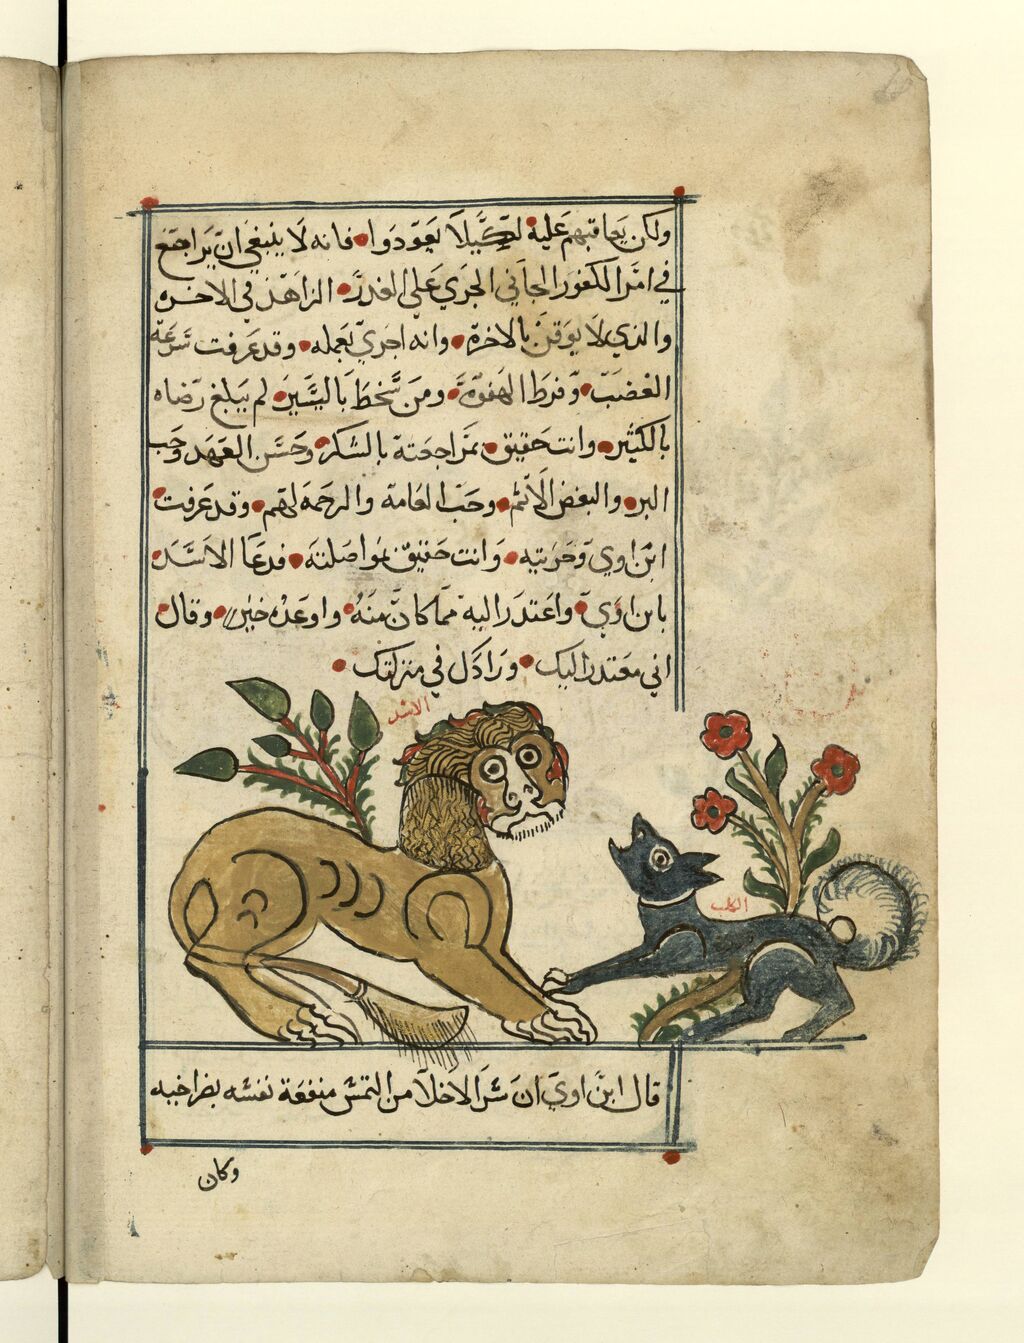 ولكن يعاقبهم علية لكيلا يعودوا فانه لا ينبغي ان يراجع
في امر الكفور الجاني الجري علي الغدر الزاهد في الاخره
والذي لا يوقن بالاخرة وانه اجري بعمله وقد عرفت سرعة
الغضب وفرط الهفوة ومن سخط باليسير لم يبلغ رضاه
بالكثير وانت حقيق بمراجعتة بالشكر وحسن العهد وحب
البر والبغض الاثم وحب العامة والرحمة لهم وقد عرفت
ابن اوي وحربيه وانت حقيق بمواصلته فدعا الاسد
بابن اوي واعتدر اليه مما كان منه واوعده خيرا وقال
اني معتدر اليك ورادك في منزلتك
الاسد
الكلب
قال ابن اوي ان شر الاخلا من التمس منفعة نفسه بضر اخيه
وكان